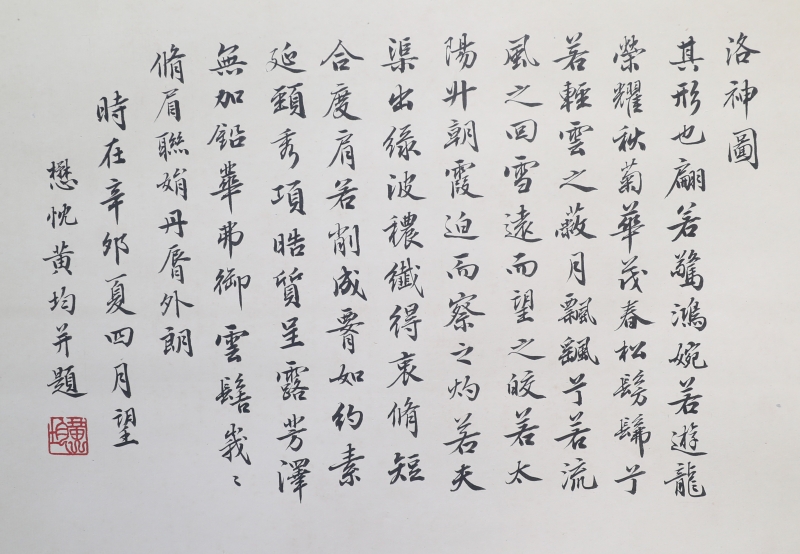 洛神圖
其形也翩若驚鴻婉若遊龍
榮耀秋菊華茂春松髣髴兮
若輕雲之蔽月飄颻兮若流
風之回雪遠而望之皎若太
陽升朝霞迫而察之灼若夫
渠出綠波穠纖得衷脩短
合度肩若削成要如約素
延頸秀項皓質呈露芳澤
無加鉛華弗御雲髻峩〻
脩眉聯娟丹脣外朗
時在辛卯夏四月望
懋忱黃均并題
黃均